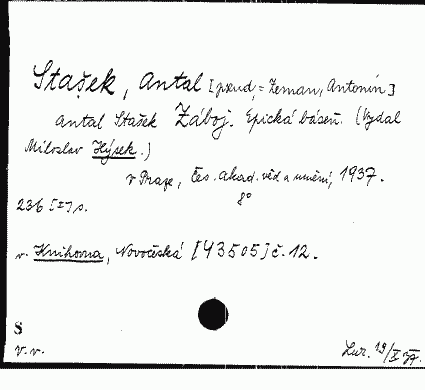 Stašek, Antal [pseud. = Zeman, Antonín]
Antal Stašek Záboj. Epická báseň. (Vydal
Miloslav Hýsek.)
v Praze, Čes. akad. věd a umění, 1937.
8°
236 [I] s.
v. Knihovna, Novočeská [43505] č. 12.
S
v. v.
Lur. 19/X